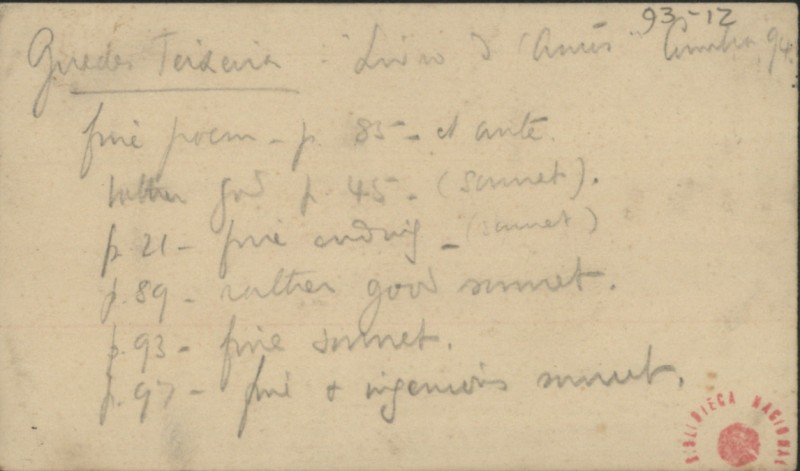 93-12
Guedes Teixeira - "Livro d'Amor" Coimbra, 94.
fine poem - p. 85 - et ante.
rather good p. 45 - (sonnet).
p. 21 - fine ending - (sonnet)
p. 89 - rather good sonnet.
p. 93 - fine sonnet.
p. 97 - fine & ingenious sonnet.
BIBLIOTECA NACIONAL